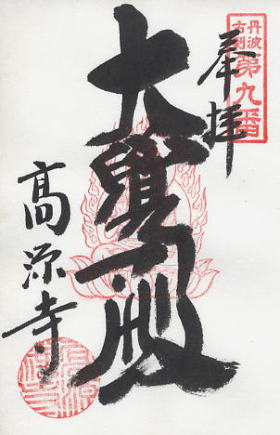 丹波
古刹
第九番
奉拝
大雄殿
高源寺